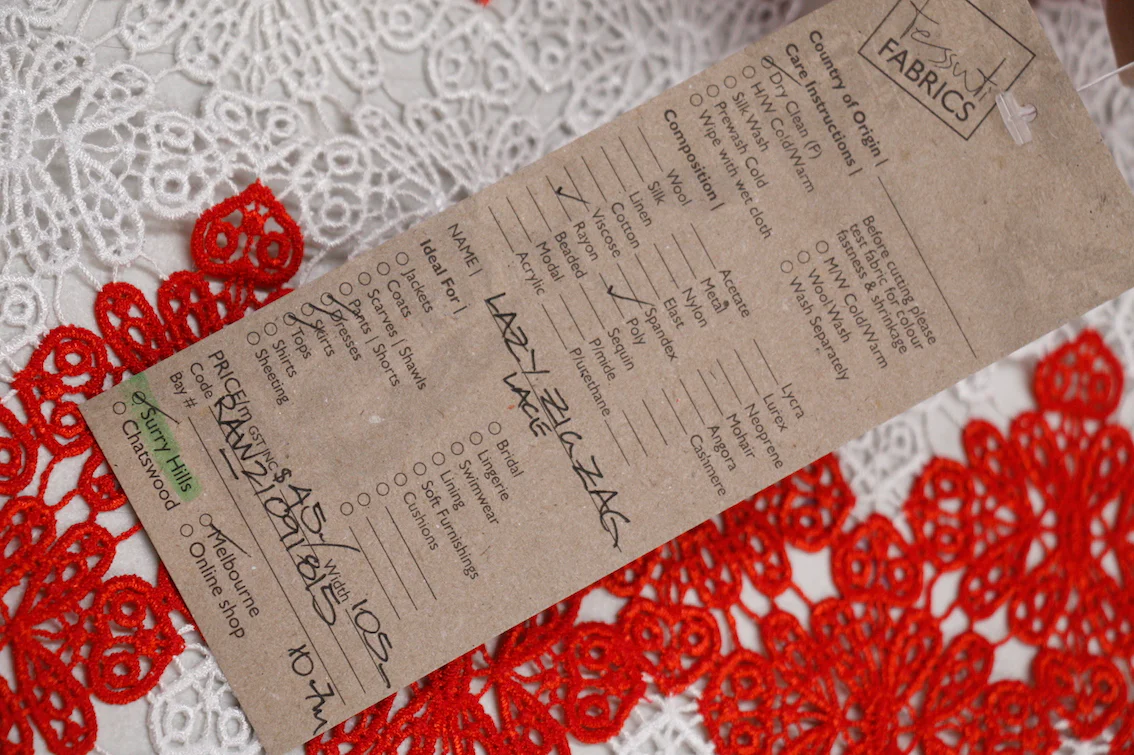 Tessuti
FABRICS
Country of Origin |
Care Instructions |
Dry Clean (P)
H/W Cold/Warm
Silk Wash
Prewash Cold
Wipe with wet cloth
Before cutting please
test fabric for colour
fastness & shrinkage
M/W Cold/Warm
Wool Wash
Wash Separately
Composition |
Wool
Silk
Linen
Cotton
Viscose
✓ Rayon
Beaded
Modal
Acrylic
Acetate
Metal
Nylon
Elast
Spandex
✓ Poly
Sequin
P/mide
P/urethane
Lycra
Lurex
Neoprene
Mohair
Angora
Cashmere
NAME | LAZY ZIGZAG
LACE
Ideal For |
Jackets
Coats
Scarves | Shawls
Pants | Shorts
Dresses
Skirts
Tops
Shirts
Sheeting
Bridal
Lingerie
Swimwear
Lining
Soft Furnishings
Cushions
PRICE/m GST INC $ 45 Width 105
Code RAW21091815
Bay #
Surry Hills
Chatswood
Melbourne
Online shop